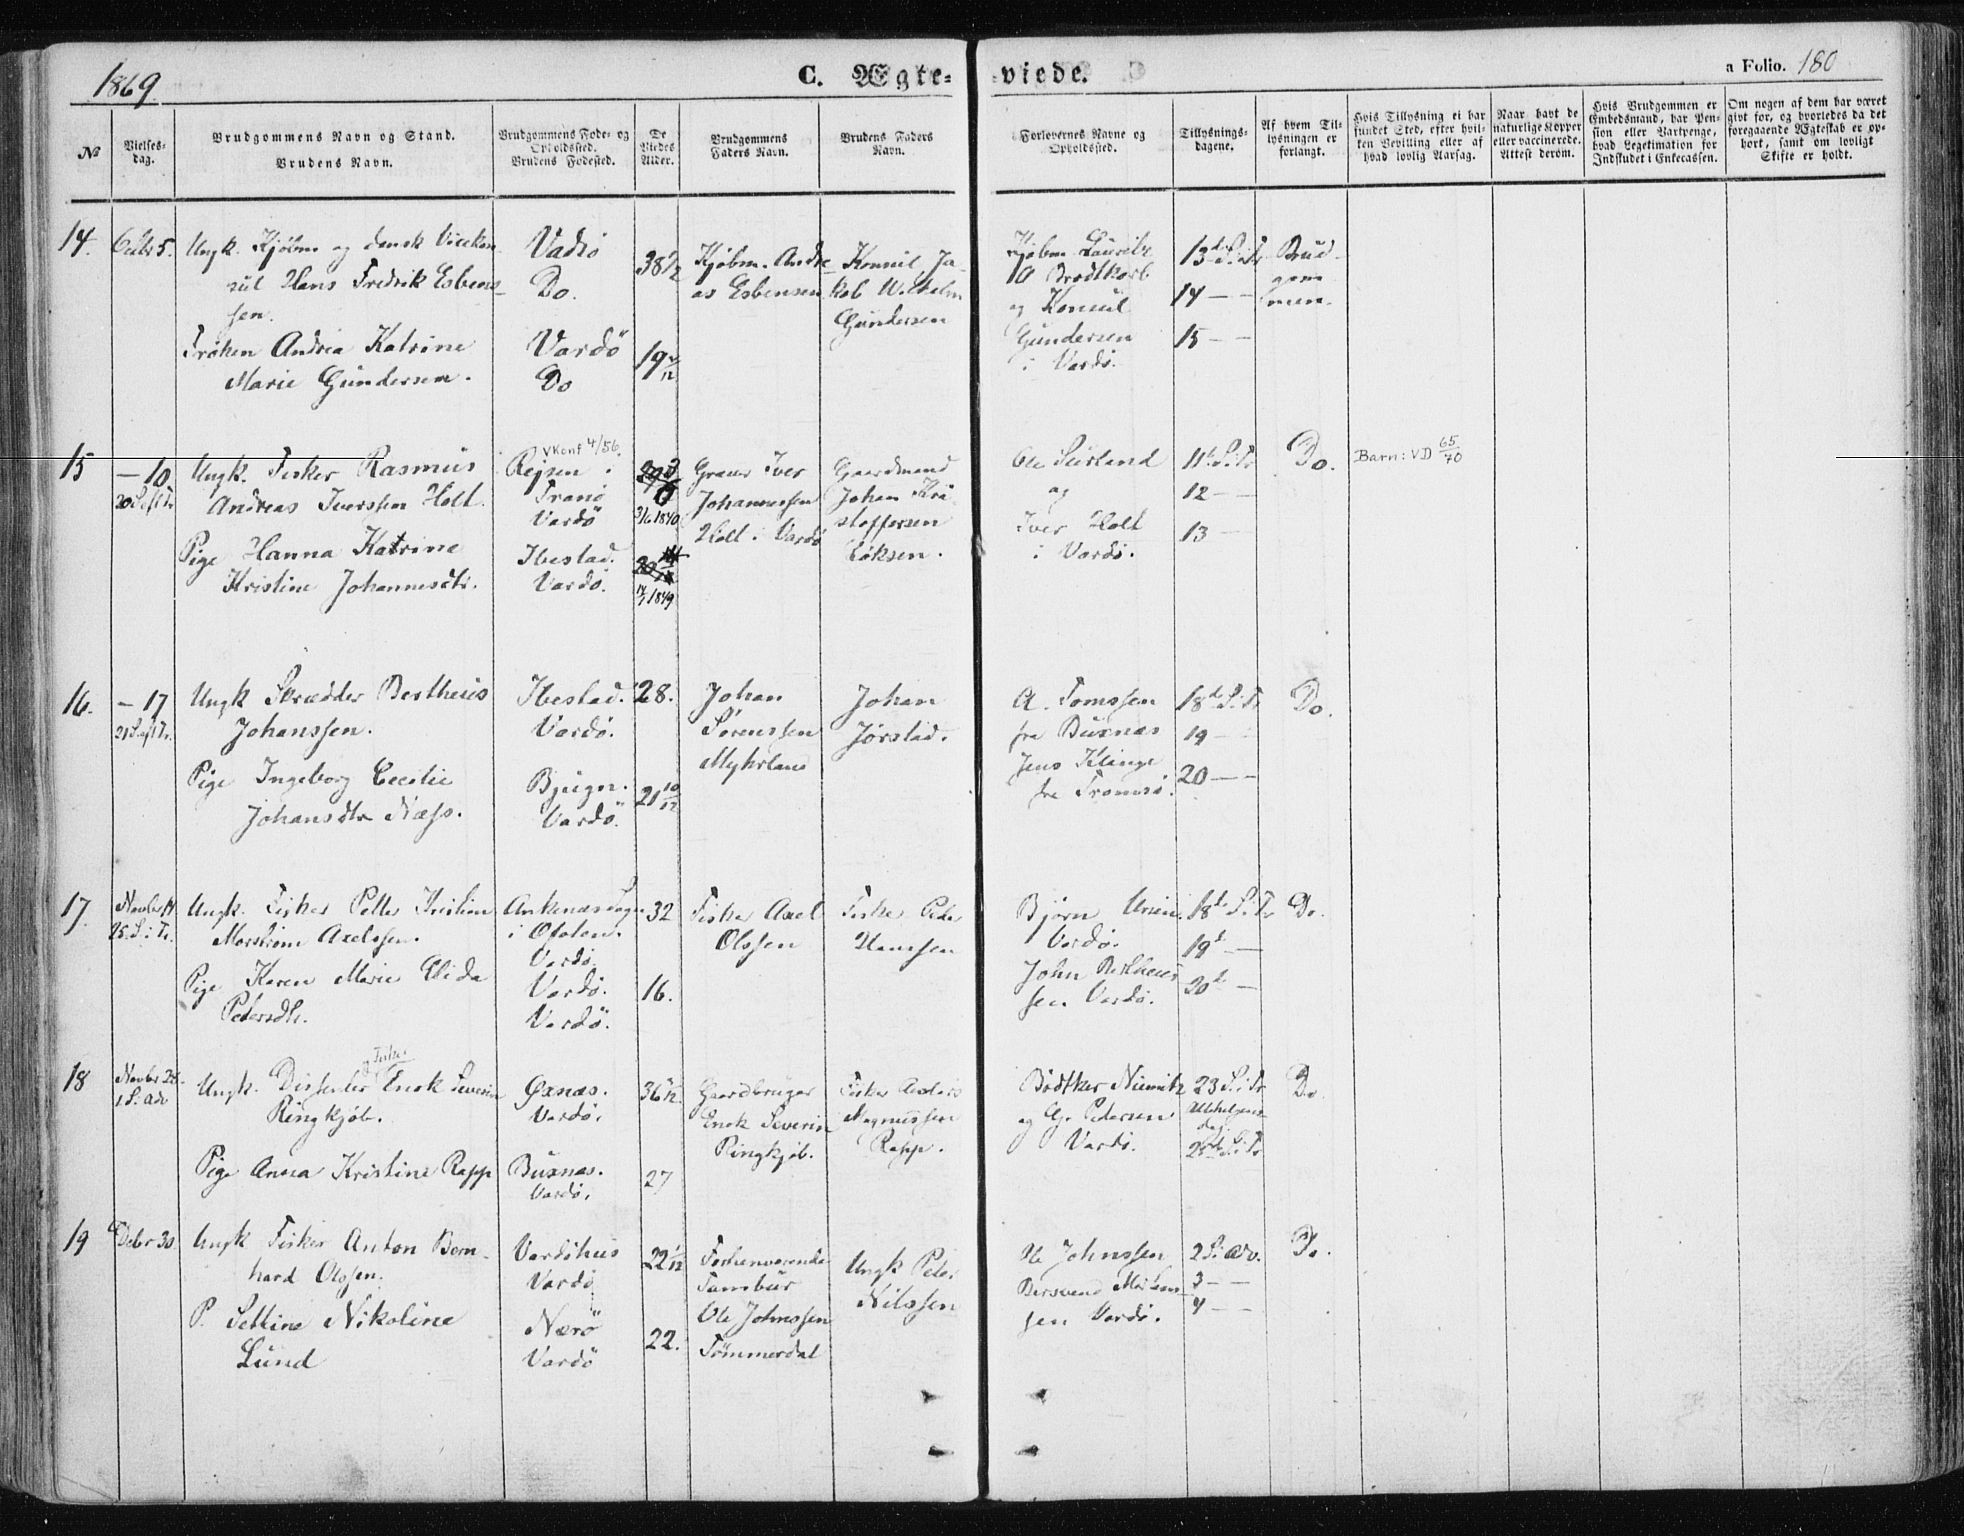 1869
C. Ægte-
viede.
a Folio. 180
№
Vielses-
dag.
Brudgommens Navn og Stand.
Brudens Navn.
Brudgommens Føde- og
Opholdssted.
Brudens Fødested.
De
Viedes
Alder.
Brudgommens
Faders Navn.
Brudens Faders
Navn.
Forlovernes Navne og
Opholdssted.
Tillysnings-
dagene.
Af hvem Til-
lysningen er
forlangt.
Hvis Tillysning ei har
fundet Sted, efter hvil-
ken Bevilling eller af
hvad lovlig Aarsag.
Naar havt de
naturlige Kopper
eller vaccinerede.
Attest derom.
Hvis Brudgommen er
Embedsmand, har Pen-
sion eller Vartpenge,
hvad Legetimation for
Indskudet i Enkecassen.
Om nogen af dem har været
givt før, og hvorledes da det
foregaaende Ægteskab er op-
hørt, samt om lovligt
Skifte er holdt.
14.
Octbr 5.
Ungk. Kjøbm og dansk Vicekon
sul Hans Fredrik Esbens-
sen.
Frøken Andrea Katrine
Marie Gundersen.
Vadsø
Do.
Vardö
Do
38 1/2
19
Kjøbm. Andre-
as Esbensen
Konsul Ja-
kob Wilhelm
Gundersen
Kjøbm. Lauritz
Brodtkorb
og Konsul
Gundersen
i Vardö.
13d S. i Tr
14 — —
15 — —
Brud-
gom
men.
15
— 10
20 S. eft Tr
Ungk. Fisker Rasmus
Andreas Iverssen Holt.
Pige Hanna Katrine
Kristine Johannesdtr.
VKonf 4/56.
Rejsen i
Tranö
Vardö
Ibestad.
Vardö.
3/6 1840
1849
Graver Iver
Johannessen
Holt i Vardö
Gaardmand
Johan Kri
stoffersen
Löksen.
Ole Seirland
og
Iver Holt
i Vardö.
11t. S. i Tr
12 — —
13 —
Do.
Barn: VD 65/70
16.
— 17
21 S. eft Tr.
Ungk Skrædder Bertheus
Johanssen.
Pige Ingeborg Cecilie
Johansdtr Næss.
Ibestad.
Vardö.
Bjugn.
Vardö.
28.
21 10/12
Johan
Sörenssen
Myhrland
Johan
Jørstad.
A. Tomssen
fra Buxnæs
Jens Klinge
fra Tromsö.
18de S. i Tr
19 — —
20 — —
Do.
17.
Novbr 14
25. S. i Tr.
Ungk. Fisker Petter Kristian
Morstrøm Axelssen.
Pige Karen Marie Elida
Pedersdtr.
Ankenæs Sogn
i Ofoten.
Vardö.
Vardö.
Vardö.
32
16.
Fisker Axel
Olssen
Fisker Peder
Hanssen
Bjørn
Vardö.
John Bertheus
sen Vardö.
18de S. i Tr
19d —
20d —
Do.
18
Novbr 28
1 S. i Adv
Ungk. Dissenter og Fisker Enok Severin
Ringkjøb.
Pige Anna Kristine Rapp
Øxnæs.
Vardö.
Buxnæs.
Vardö.
36
27
Gaardbruger
Enok Severin
Ringkjøb.
Fisker Anders
Magnussen
Rapp.
Bödtker
og Pedersen
Vardö.
23 S. i Tr
Allehelgens-
dag.
25de S. i Tr
Do.
19
Debr 30
Ungk Fisker Anton Bern-
hard Olssen.
P. Nikoline
Lund
Vardöhus
Vardö
Nærö
Vardö
22 1/12
22.
Forhenværende
Tambur
Ole Johnssen
Tømmerdal
Ungk Peder
Nilssen
Ole Johnssen
sen Vardö.
2 S. i Adv.
3 — —
4 — —
Do.